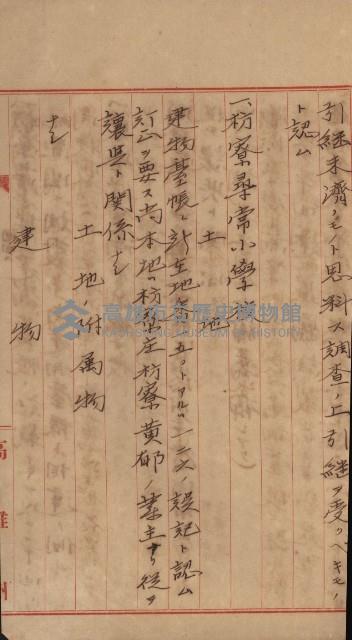 引継未済ノモノト思料ス調査ノ上引継ヲ受クヘキモノ
ト認ム
一、枋寮尋常小學
土地
建物臺帳ニ所在地 五〇トアルハ一二六ノ誤記ト認ム
訂正ヲ要ス尚本地ハ枋寮庄枋寮黄郁ノ業主ナリ從ツ
讓與ト関係ナ
土地ノ附属物
ナ
建物
高雄州
高雄市立歷史博物館
KAOHSIUNG MUSEUM OF HISTORY